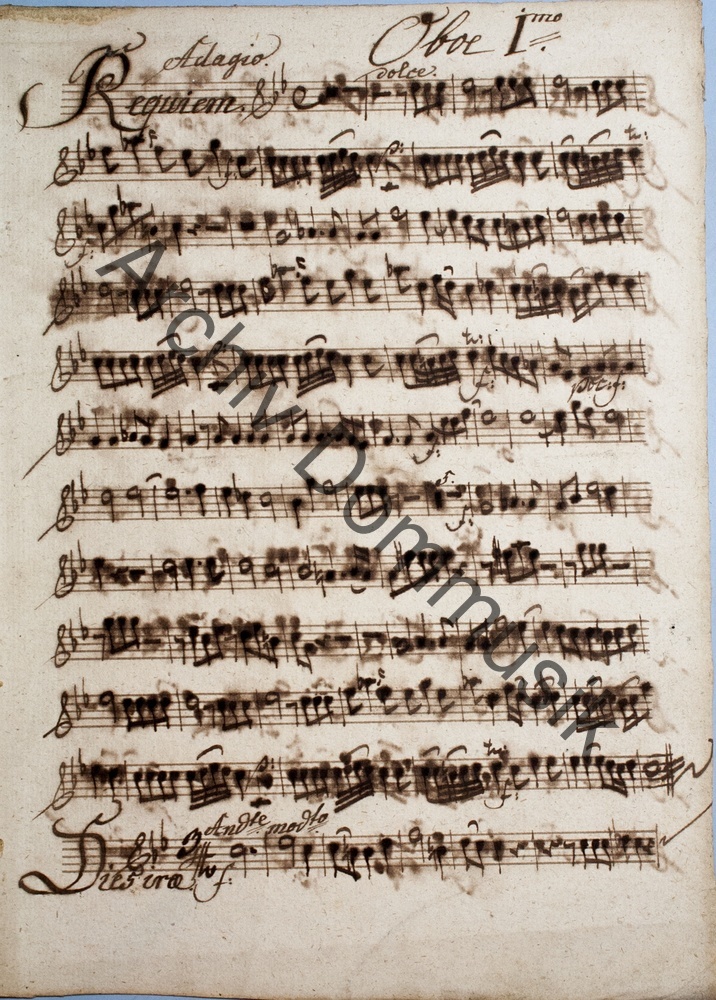 Oboe Imo
Adagio.
dolce.
Requiem.
f:
p:
tr:
f:
tr:
f:
poc: f:
f:
f:
tr:
f:
Andte modto
Dies irae f:
Archiv Dommusik